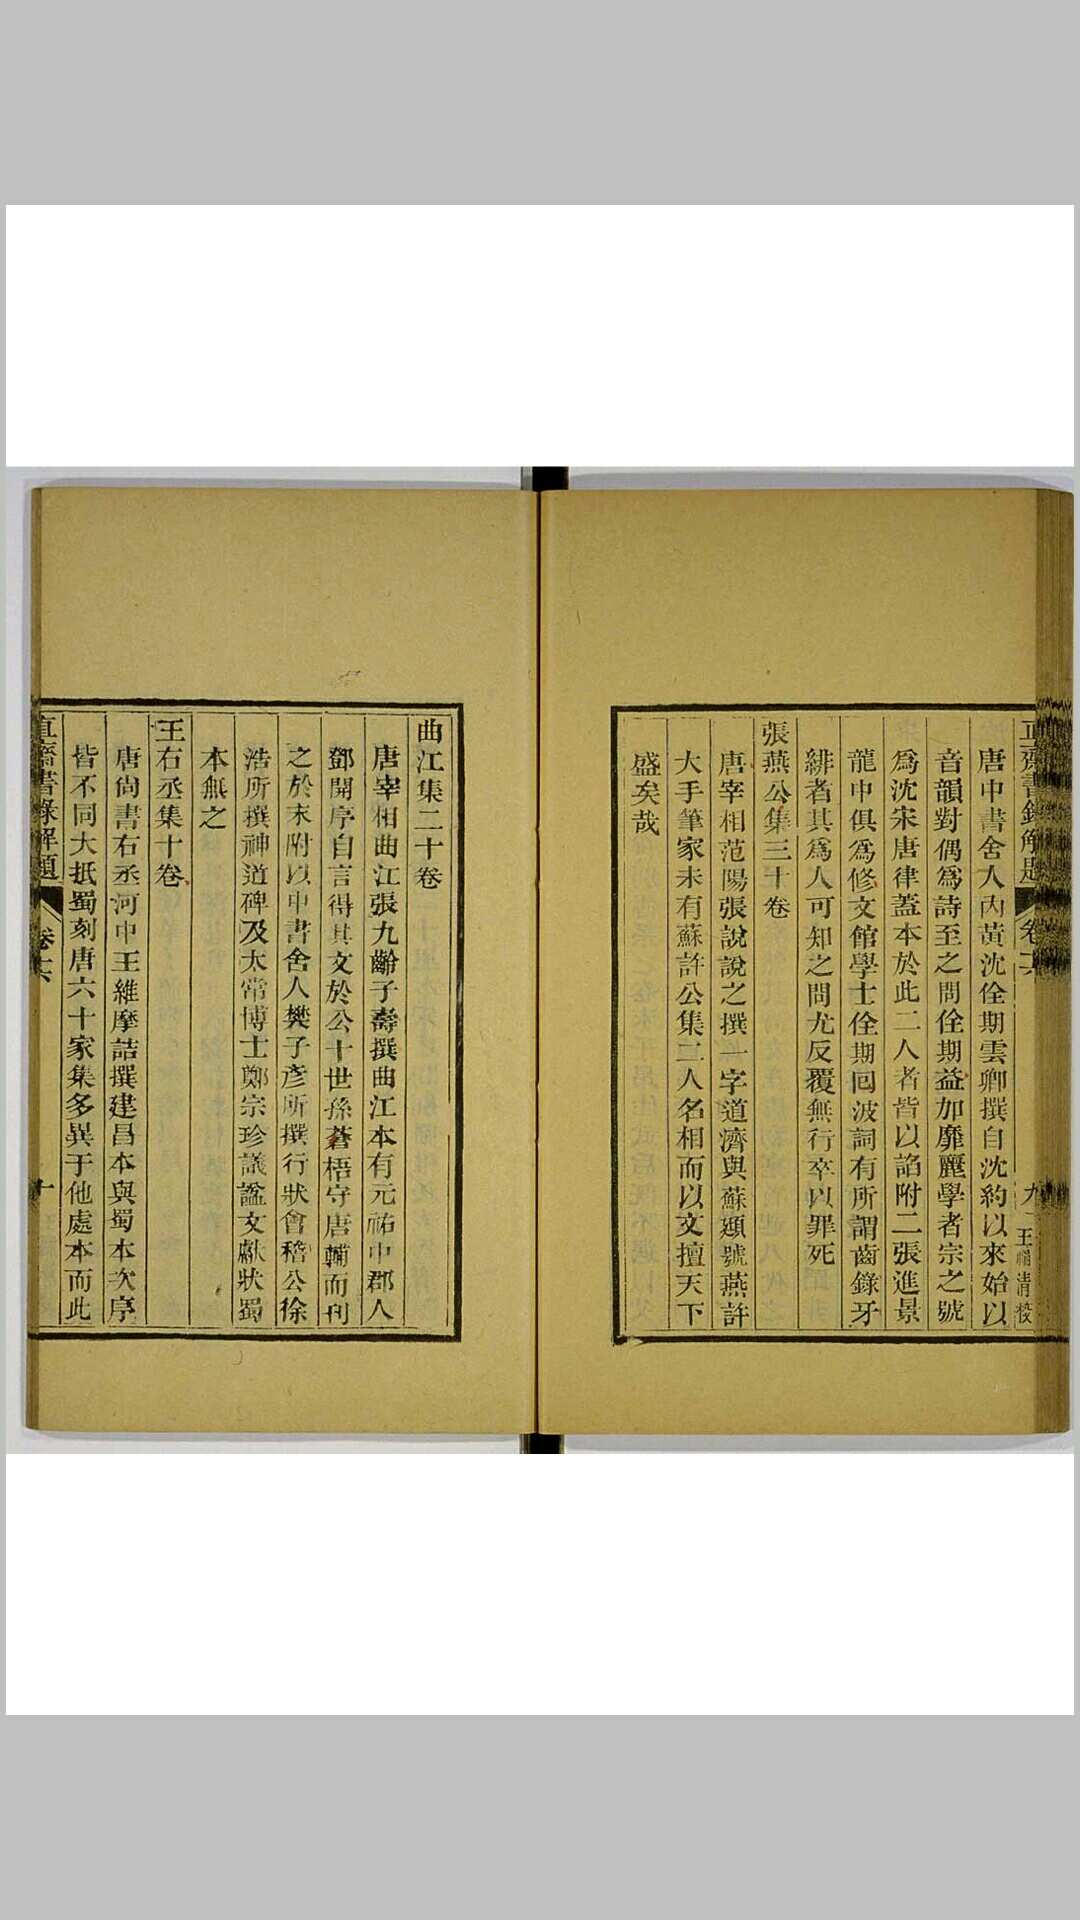 直齋書錄解題 卷十六 九 王 清校
唐中書舍人內黃沈佺期雲卿撰自沈約以來始以
音韻對偶爲詩至之問佺期益加靡麗學者宗之號
爲沈宋唐律蓋本於此二人者皆以諂附二張進景
龍中俱爲修文館學士佺期回波詞有所謂齒錄牙
緋者其爲人可知之問尤反覆無行卒以罪死
張燕公集三十卷
唐宰相范陽張說說之撰一字道濟與蘇頲號燕許
大手筆家未有蘇許公集二人名相而以文擅天下
盛矣哉
曲江集二十卷
唐宰相曲江張九齡子壽撰曲江本有元祐中郡人
鄧開序自言得其文於公十世孫蒼梧守唐輔而刊
之於末附以中書舍人樊子彥所撰行狀會稽公徐
浩所撰神道碑及太常博士鄭宗珍議謚文獻狀蜀
本無之
王右丞集十卷
唐尙書右丞河中王維摩詰撰建昌本與蜀本次序
皆不同大抵蜀刻唐六十家集多異于他處本而此
直齋書錄解題 卷十六 十